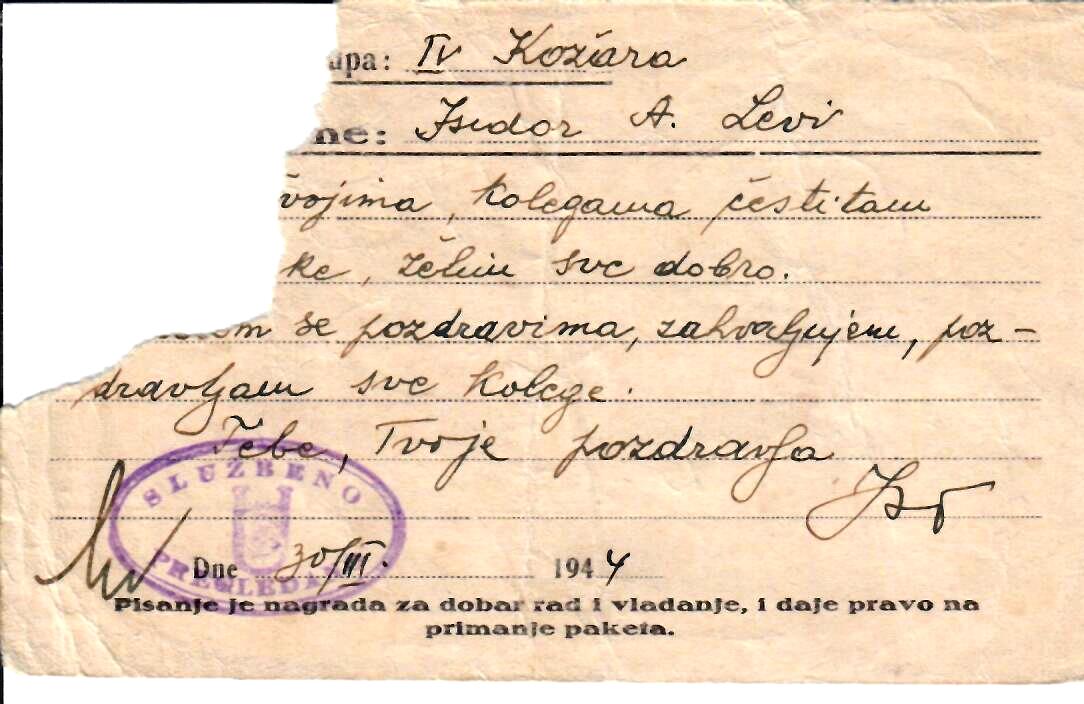 upa: IV Kožara
ne: Isidor A. Levi
vojima, kolegama čestitam
ke, želim sve dobro.
se pozdravima, zahvaljujem, poz-
dravljam sve kolege.
Tebe, Tvoje pozdravlja
SLUŽBENO
PREGLEDANO
Dne 30/III. 1944
Pisanje je nagrada za dobar rad i vladanje, i daje pravo na
primanje paketa.